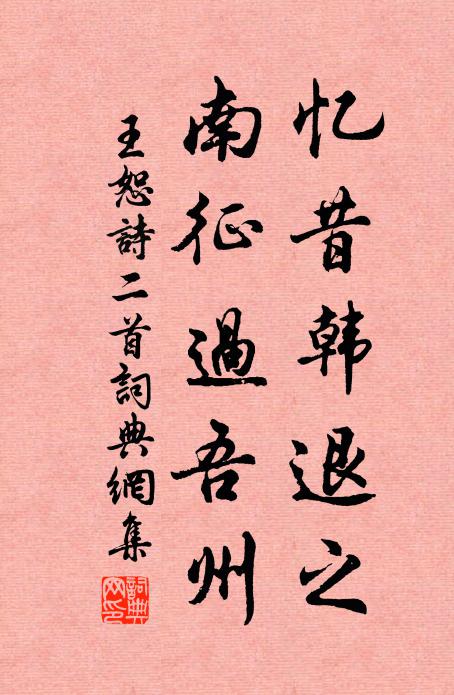 忆昔韩退之
南征過吾州
王恕詩二首詞典網集
詞典网印